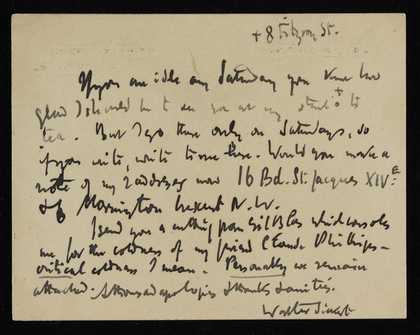 + 8 Fitzroy St.
If you are idle any Saturday you know how
glad I should be to see you at my studio + to
tea. But I go there only on Saturdays, so
if you write, write to me there. Would you make a
note of my 2 addresses now 16 Bd. St. Jacques XIVE
+ 6 Mornington Crescent N.W.
I send you a cutting from Gil Blas which consoles
me for the coldness of my friend Claude Phillips –
critical coldness I mean. Personally we remain
attached. A thousand apologies & thanks
Walter Sickert